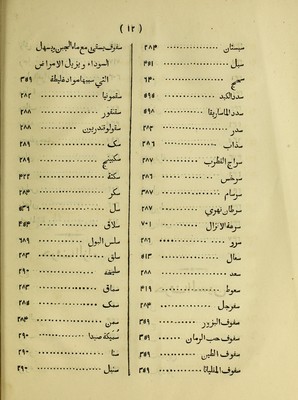 ( ١٢ )
سبستان ٢٨٤
سبل ٤٥١
سحج ٦٤٠
سدد الكبد ٥٩٥
سدد الماساريقا ٥٩٨
سدر ٢٨٣
سذاب ٢٨٦
سراج القطرب ٢٨٧
سرخس ٢٨٦
سرسام ٣٨٧
سرطان نهري ٢٨٧
سرعة الانزال ٧٠١
سرو ٢٨٦
سعال ٥١٣
سعد ٢٨٨
سعوط ٤١٩
سفرجل ٢٨٤
سفوف البزور ٣٥٩
سفوف حب الرمان ٣٥٩
سفوف الطين ٣٥٩
سفوف المقلياثا ٣٥٩
سفوف يسقى مع ماء الجبن يسهل
السوداء ويزيل الامراض
التي سببها مواد غليظة ٣٥٩
سقمونيا ٢٨٢
سقنقور ٢٨٨
سقولوقندريون ٢٨٨
سك ٢٨٩
سكبينج ٢٨٩
سكتة ٤٢٢
سكر ٢٨٣
سل ٥٣٦
سلاق ٤٥٣
سلس البول ٦٨٩
سلق ٢٨٣
سليخة ٢٩٠
سماق ٢٨٣
سمك ٢٨٥
سمن ٢٨٤
سميكة صيدا ٢٩٠
سنا ٢٩٠
سنبل ٢٩٠